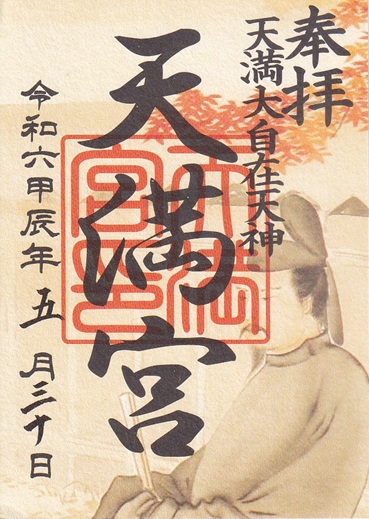 奉拝
天満大自在天神
天満宮
天満宮印
令和六甲辰年五月三十日